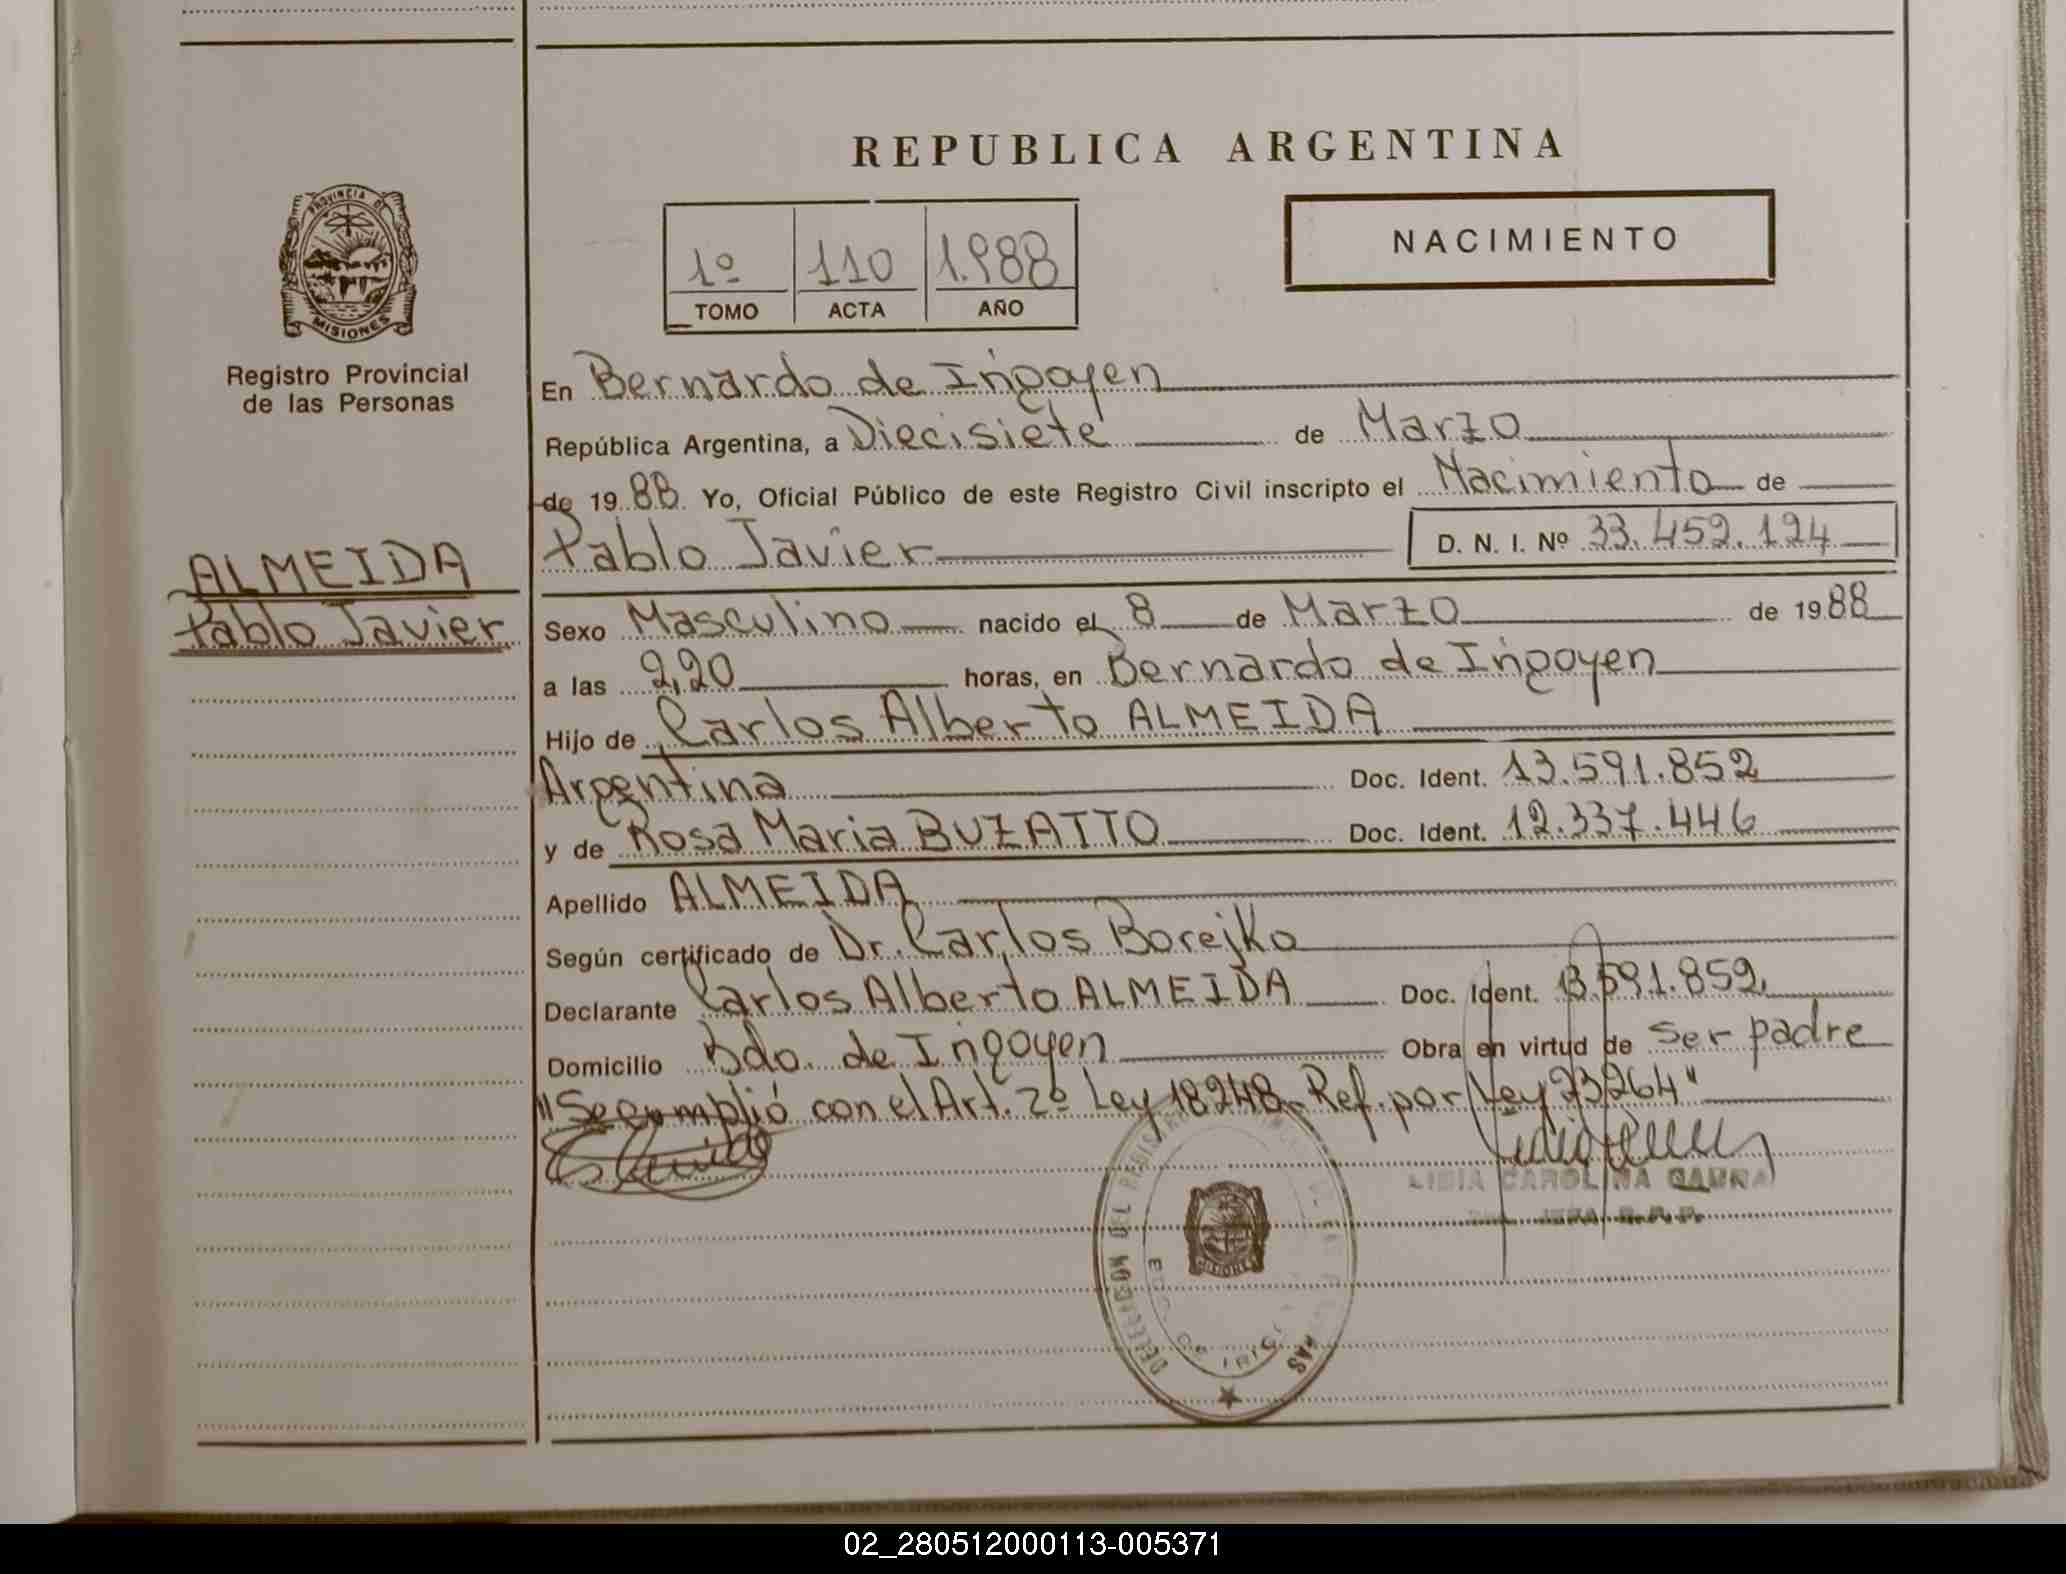 REPUBLICA ARGENTINA
PROVINCIA DE
MISIONES
Registro Provincial
de las Personas
1º 110 1.988
TOMO ACTA AÑO
NACIMIENTO
En Bernardo de Irigoyen
República Argentina, a Diecisiete de Marzo
de 19 88 Yo, Oficial Público de este Registro Civil inscripto el Nacimiento de
Pablo Javier D. N. I. Nº 33.452.124
ALMEIDA
Pablo Javier
Sexo Masculino nacido el 8 de Marzo de 1988
a las 2,20 horas, en Bernardo de Irigoyen
Hijo de Carlos Alberto ALMEIDA
Argentina Doc. Ident. 13.591.852
y de Rosa Maria BUZATTO Doc. Ident. 12.337.446
Apellido ALMEIDA
Según certificado de Dr. Carlos Borejko
Declarante Carlos Alberto ALMEIDA Doc. Ident. 13.591.852
Domicilio Bdo. de Irigoyen Obra en virtud de ser padre
"Se cumplió con el Art. 2º Ley 18248 Ref. por Ley 23264"
LIDIA CAROLINA
DELEGACION DEL REGISTRO
02_280512000113-005371